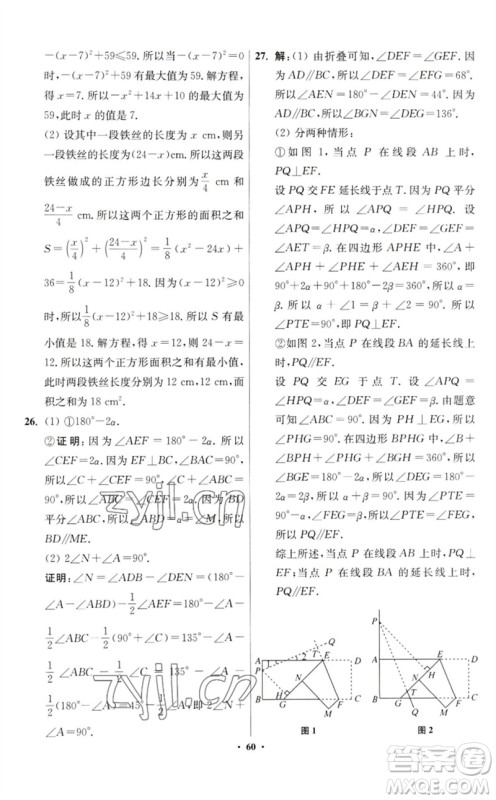 -(x-7)²+59⩽59. 所以当 -(x-7)²=0
时,-(x-7)²+59 有最大值 59. 解方程,
得 x=7. 所以 -x²+14x+10 的最大值为
59,此时 x 的值为 7.
(2) 设其中一段铁丝的长度为 x cm,则另
一段铁丝的长度为(24-x)cm. 所以这两段
铁丝做成的正方形边长分别为 x/4 cm、
(24-x)/4 cm. 所以这两个正方形的面积之和
S=(x/4)²+((24-x)/4)²=1/8(x²-24x)+
36=1/8(x-12)²+18. 因为 1/8(x-12)²⩾0
时,所以 1/8(x-12)²+18⩾18. 所以 S 有最
小值是 18. 解方程,得 x=12. 所以这两个
正方形的面积之和有最小值,此时两段铁丝
的长度分别为 12 cm 和 12 cm. 这两个正方
形面积之和为 18 cm².
26. (1) ①180°-2α.
②证明:因为∠AEF=180°-2α,所以
∠CEF=2α. 因为 EF⊥BC,∠BAC=90°.
所以∠C+∠ABC=90°,∠C+∠CEF=
90°. 所以∠ABC=∠CEF=2α. 因为 BD
平分∠ABC,所以∠ABD=α=∠M,所以
BD//ME.
(2) 2∠N+∠A=90°.
证明:∠N=∠ADB-∠DEN=(180°-
∠A-∠ABD)-1/2∠AEF=180°-∠A-
1/2∠ABC-1/2(90°+∠C)=135°-∠A-
1/2∠ABC-1/2∠C=135°-∠A-
1/2(180°-∠A)=45°-1/2∠A,即 2∠N+
∠A=90°.
27. 解:(1) 由折叠可知,∠DEF=∠GEF.
因为 AD//BC,所以∠DEF=∠EFG=68°.
所以∠AEN=180°-∠DEN=44°. 因为
AD//BC,所以∠BGN=∠DEG=136°.
(2) 分两种情形:
①如图 1,当点 P 在线段 AB 上时,
PQ⊥EF.
设 PQ 交 FE 延长线于点 H. 因为 PQ 平分
∠APH,所以∠APQ=∠HPQ. 设
∠APQ=∠HPQ=α,∠PHE=β. 因为
∠GEF=∠2,所以∠1=∠2. 因为∠A=
90°. 所以在四边形 APHE 中,∠A+
∠APH+∠PHF+∠AEH=360°,即
90°+2α+90°+180°-2β=360°,所以 α=
∠1. 所以 α+∠1=β+∠2=90°. 所以
∠PTE=90°,即 PQ⊥EF.
②如图 2,当点 P 在 BA 的延长线上时,
PQ//EF.
设 PQ 交 EG 于点 T. 设∠APQ=
∠HPQ=α. 因为 PH⊥EG,所以
∠PHG=90°. 因为四边形 BPHG 中,
∠B+∠BPH+∠PHG+∠BGH=360°,
即 90°+2α+90°+180°-2β=360°,
所以 α=β. 因为 α+∠PTE=90°,
β+∠FEG=90°,所以∠PTE=
∠FEG. 所以 PQ//EF.
综上所述,当点 P 在线段 AB 上时,
PQ⊥EF;当点 P 在 BA 的延长线上时,
PQ//EF.
图 1
图 2
· 60 ·
zyjl.cn
zyjl.cn
答案圈
MXQE.COM